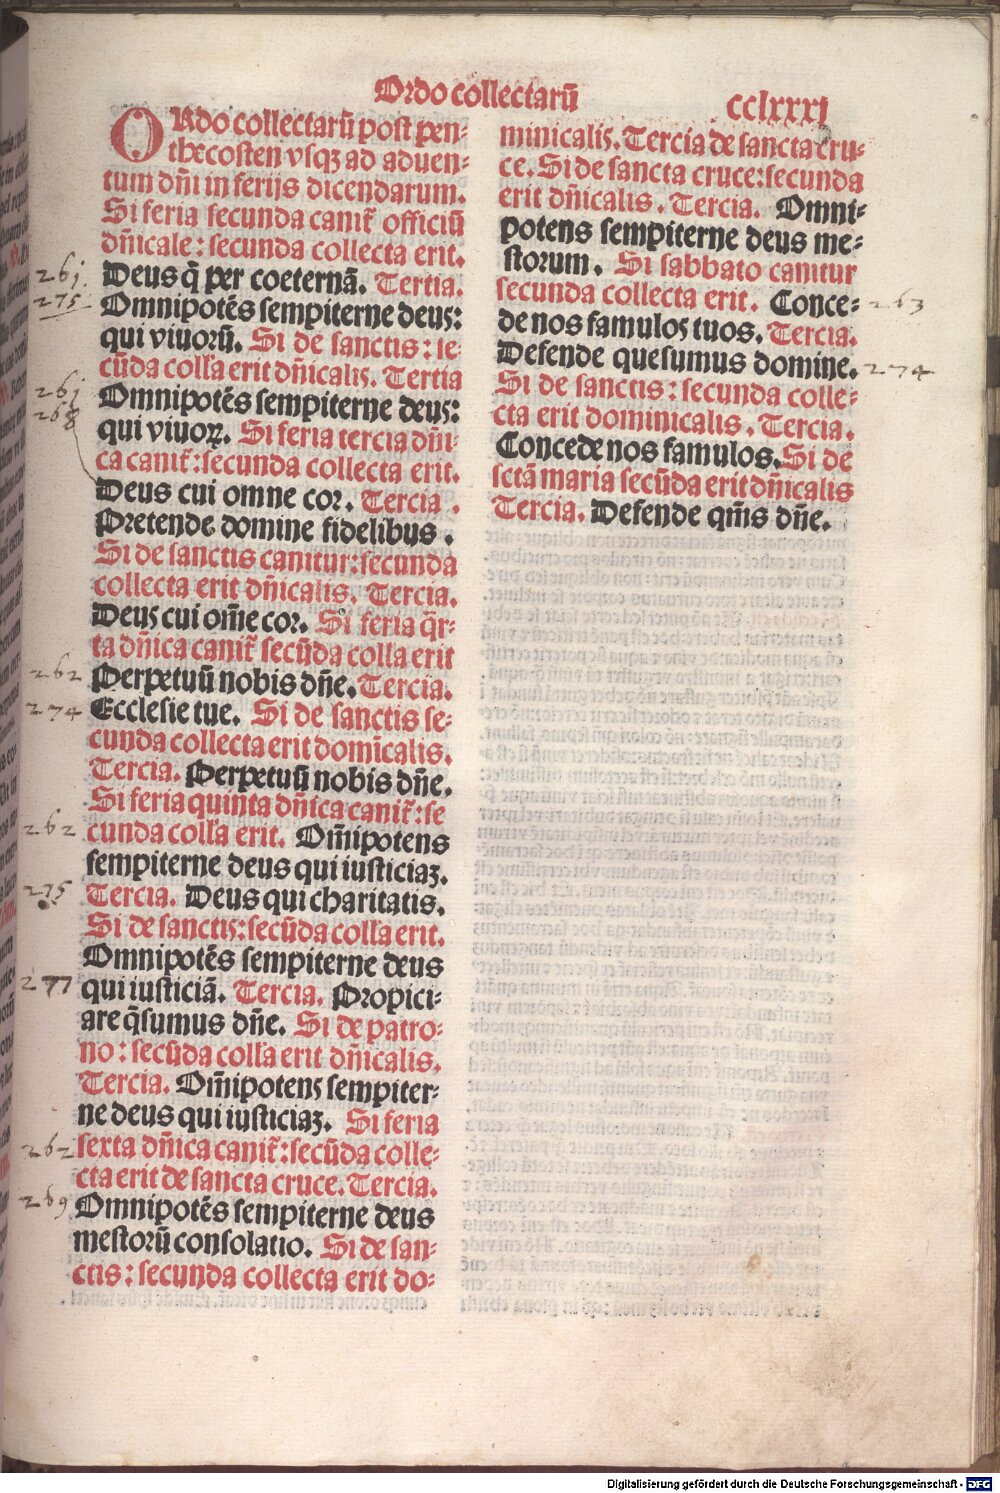 Ordo collectarū
cclxxxi
ORdo collectarū post pen-
thecosten vsqꝫ ad aduen-
tum dñi in ferijs dicendarum.
Si feria secunda canit᷑ officiū
dñicale: secunda collecta erit.
261. Deus q̄ per coeternā. Tertia.
275. Omnipotēs sempiterne deus:
qui viuorū. Si de sanctis: se-
cūda coll'a erit dñicalis. Tertia
261 Omnipotēs sempiterne deus:
268 qui viuoꝝ. Si feria tercia dñi-
ca canit᷑: secunda collecta erit.
Deus cui omne cor. Tercia.
Pretende domine fidelibus.
Si de sanctis canitur: secunda
collecta erit dñicalis. Tercia.
Deus cui om̄e cor. Si feria q̄r-
ta dñica canit᷑ secūda coll'a erit
262 Perpetuū nobis dñe. Tercia.
274 Ecclesie tue. Si de sanctis se-
cunda collecta erit domīcalis.
Tercia. Perpetuū nobis dñe.
Si feria quinta dñica canit᷑: se
262 cunda coll'a erit. Om̄ipotens
sempiterne deus qui iusticiaꝫ.
275 Tercia. Deus qui charitatis.
Si de sanctis: secūda coll'a erit.
Omnipotēs sempiterne deus
277 qui iusticiā. Tercia. Propici-
are q̄sumus dñe. Si de patro-
no: secūda coll'a erit dñicalis.
Tercia. Om̄ipotens sempiter-
ne deus qui iusticiaꝫ. Si feria
262 sexta dñica canit᷑: secūda colle-
cta erit de sancta cruce. Tercia.
269 Omnipotēs sempiterne deus
mestorū consolatio. Si de san-
ctis: secunda collecta erit do-
minicalis. Tercia de sancta cru-
ce. Si de sancta cruce: secunda
erit dñicalis. Tercia. Omni-
potens sempiterne deus me-
storum. Si sabbato canitur
secunda collecta erit. Conce- 263
de nos famulos tuos. Tercia.
Defende quesumus domine. 274
Si de sanctis: secunda colle-
cta erit dominicalis. Tercia.
Concede nos famulos. Si de
sctā maria secūda erit dñicalis
Tercia. Defende qm̄s dñe.
Digitalisierung gefördert durch die Deutsche Forschungsgemeinschaft - DFG